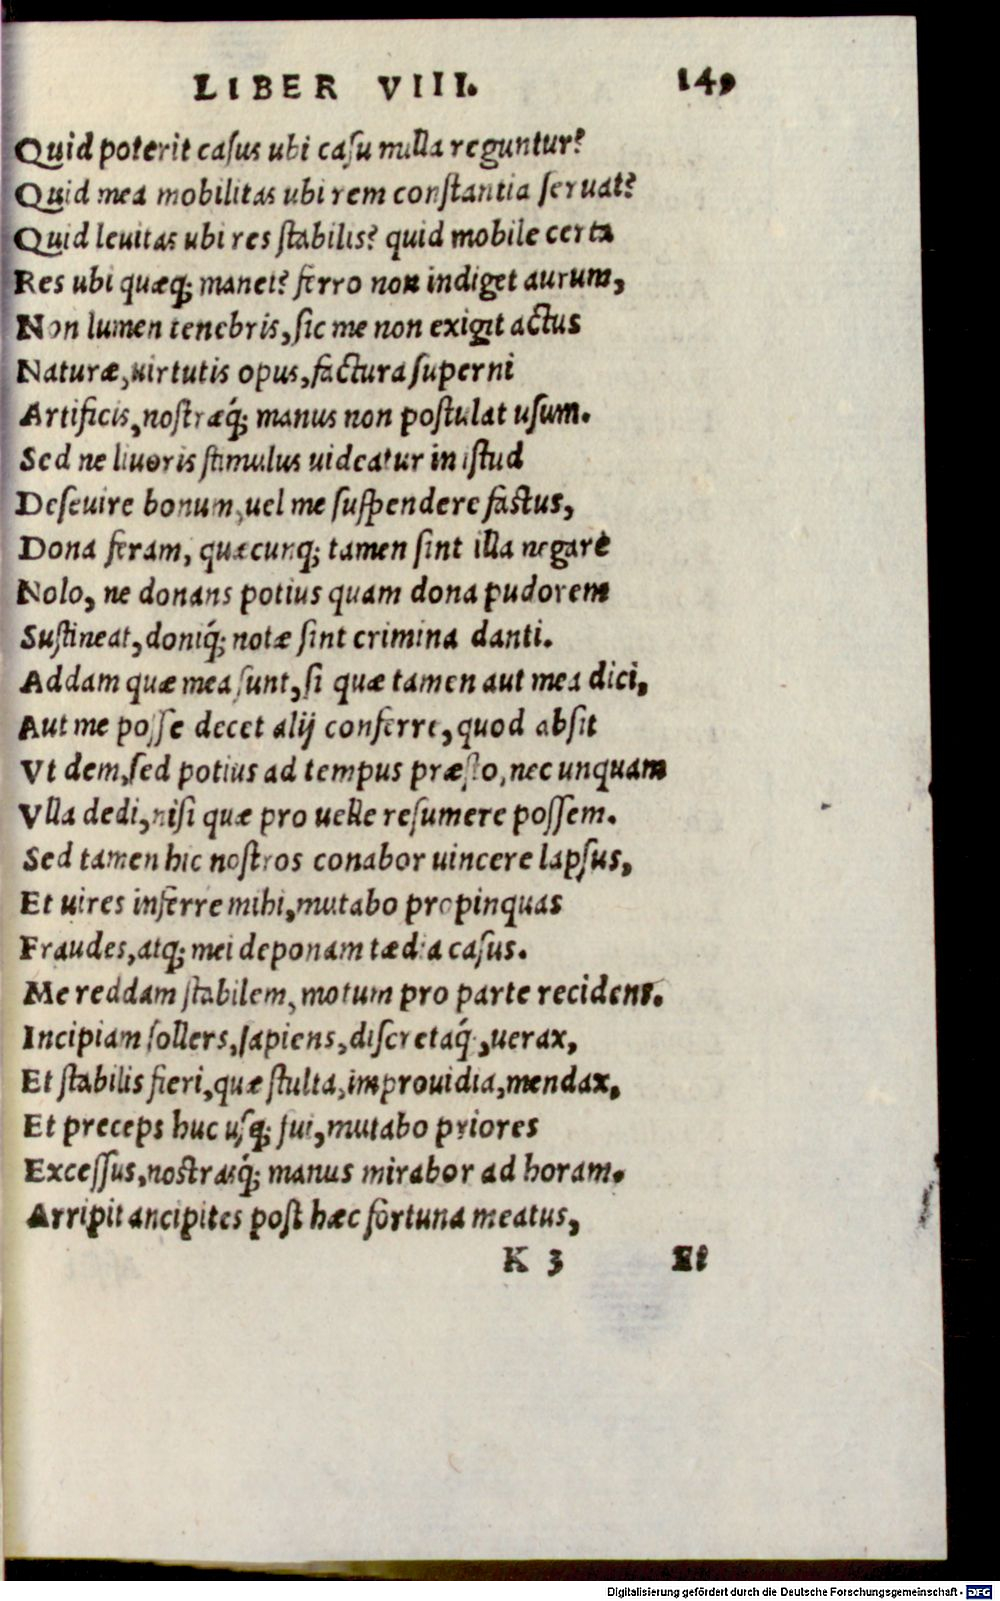 LIBER VIII. 149
Quid poterit casus ubi casu nulla reguntur?
Quid mea mobilitas ubi rem constantia seruat?
Quid leuitas ubi res stabilis? quid mobile certa
Res ubi quæq; manet? ferro non indiget aurum,
Non lumen tenebris, sic me non exigit actus
Naturæ, uirtutis opus, factura superni
Artificis, nostræq́; manus non postulat usum.
Sed ne liuoris stimulus uideatur in istud
Deseuire bonum, uel me suspendere fastus,
Dona feram, quæcunq; tamen sint illa negare
Nolo, ne donans potius quam dona pudorem
Sustineat, doniq́; notæ sint crimina danti.
Addam quæ mea sunt, si quæ tamen aut mea dici,
Aut me posse decet alij conferre, quod absit
Vt dem, sed potius ad tempus præsto, nec unquam
Vlla dedi, nisi quæ pro uelle resumere possem.
Sed tamen hic nostros conabor uincere lapsus,
Et uires inferre mihi, mutabo propinquas
Fraudes, atq; mei deponam tædia casus.
Me reddam stabilem, motum pro parte recidens.
Incipiam sollers, sapiens, discretaq́;, uerax,
Et stabilis fieri, quæ stulta, improuidia, mendax,
Et preceps huc usq; fui, mutabo priores
Excessus, nostrasq́; manus mirabor ad horam.
Arripit ancipites post hæc fortuna meatus,
K 3 Et
Digitalisierung gefördert durch die Deutsche Forschungsgemeinschaft - DFG